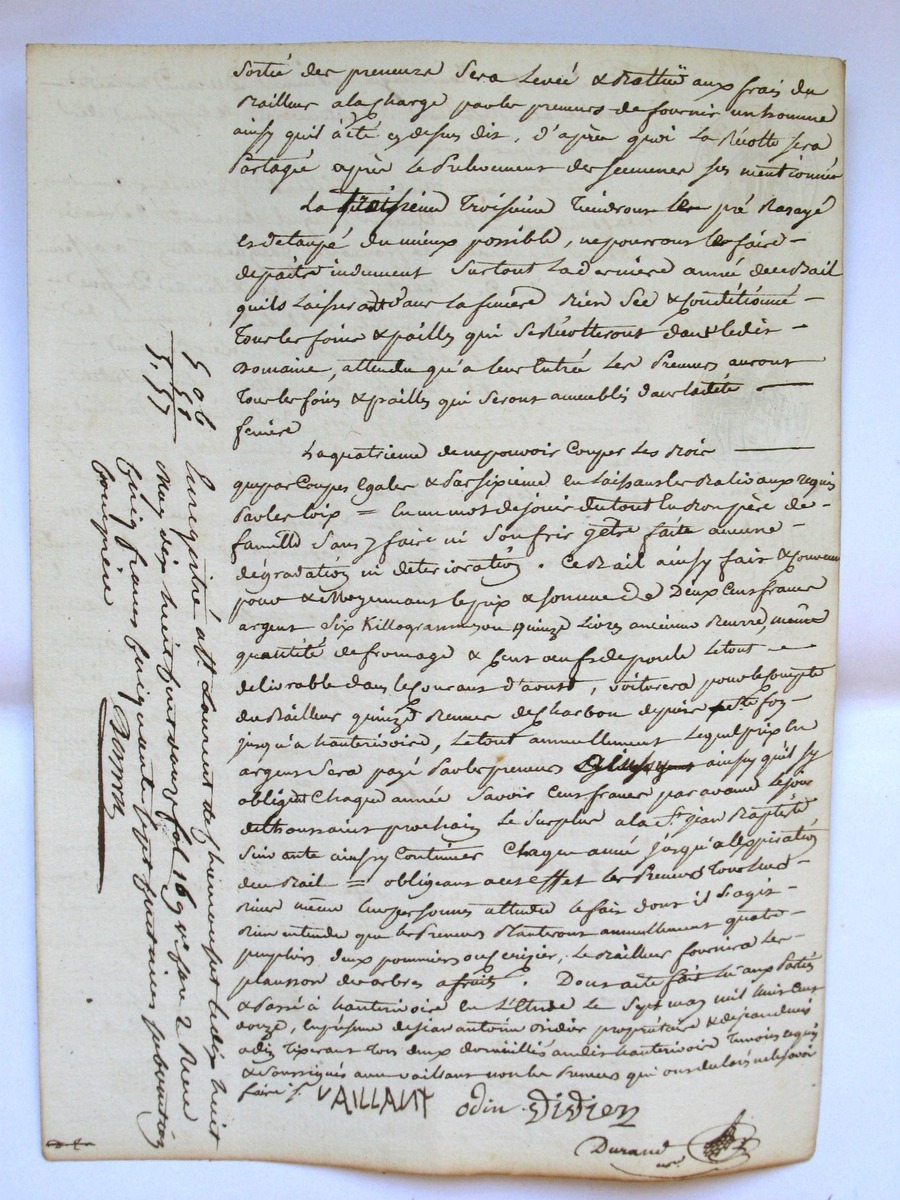 sortie des preneurs sera levée & Battuë aux frais du
Bailleur a la charge par les preneurs de fournir un homme
ainsy qu'il a été cy dessus dit, d'après quoi la Récolte sera
Partagé après le Prelevement des semences sus mentionnée
La troisieme Tiendront les pré Rasayé
et detaupé du mieux possible, ne pourront les faire
depaitre indument surtout la derniere année de ce Bail
qu'ils laisseront sur la finiere Bien & conditionné
Tous les foins & pailles qui se Récolteront dans ledit
Domaine, attendu qu'a leur Entrée les Preneurs auront
Tous les foins & pailles qui seront ameublés dans ladite
feniere
La quatrieme de ne pouvoir Couper les Bois
que par Coupes Egales & Par sixieme en laissant les Balivaux requis
Par les loix = En un mot de jouir du tout En Bon père de
famille sans y faire ni souffrir y être faite aucune
dégradation ni deterioration. Ce Bail ainsy fait & convenu
pour & Moyennant le prix & somme de Deux Cent francs
argent six Killogrammes ou quinze Livres ancienne Beurre, même
quantité de fromage & Cent oeufs de poule le tout
delivrable dans le Courant d'aoust, voiturera pour le Compte
du Bailleur quinze Bennes de Charbon depuis
jusqu'a hauterivoire, le tout annuellement lequel prix En
argent sera payé Par les preneurs ainsy qu'ils sy
obligent Chaque année savoir Cent francs par avance le jour
de thoussaint prochain le surplus a la St jean Baptiste
suivante ainsy Continuer Chaque année jusqu'a l'expiration
du Bail = obligeant a cet effet les Preneurs Tous leurs
Biens même leurs personnes attendu le fait dont il s'agit
Bien entendu que les Preneurs Planteront annuellement quatre
peupliers deux pommiers ou cerisier, le Bailleur fournira les
planson des arbres a fruits. Dont acte fait lu aux Parties
& Passé à hauterivoire En L'Etude le sept may mil huit Cent
douze, En présence de jean antoine Didier propriétaire &
odin Tixerant Tous deux domiciliés audit hauterivoire Temoins requis
& soussignés avec vaillant non les Preneurs qui ont declaré ne le savoir
faire /.
VAILLANT odin Didier
Durand
Enregistré a St Laurent de Chamousset le dix huit
May dix huit Cent douze fol 169 v° case 2 Reçu
Cinq francs Cinquante sept centimes subvention
comprise
5 06
51
5, 57